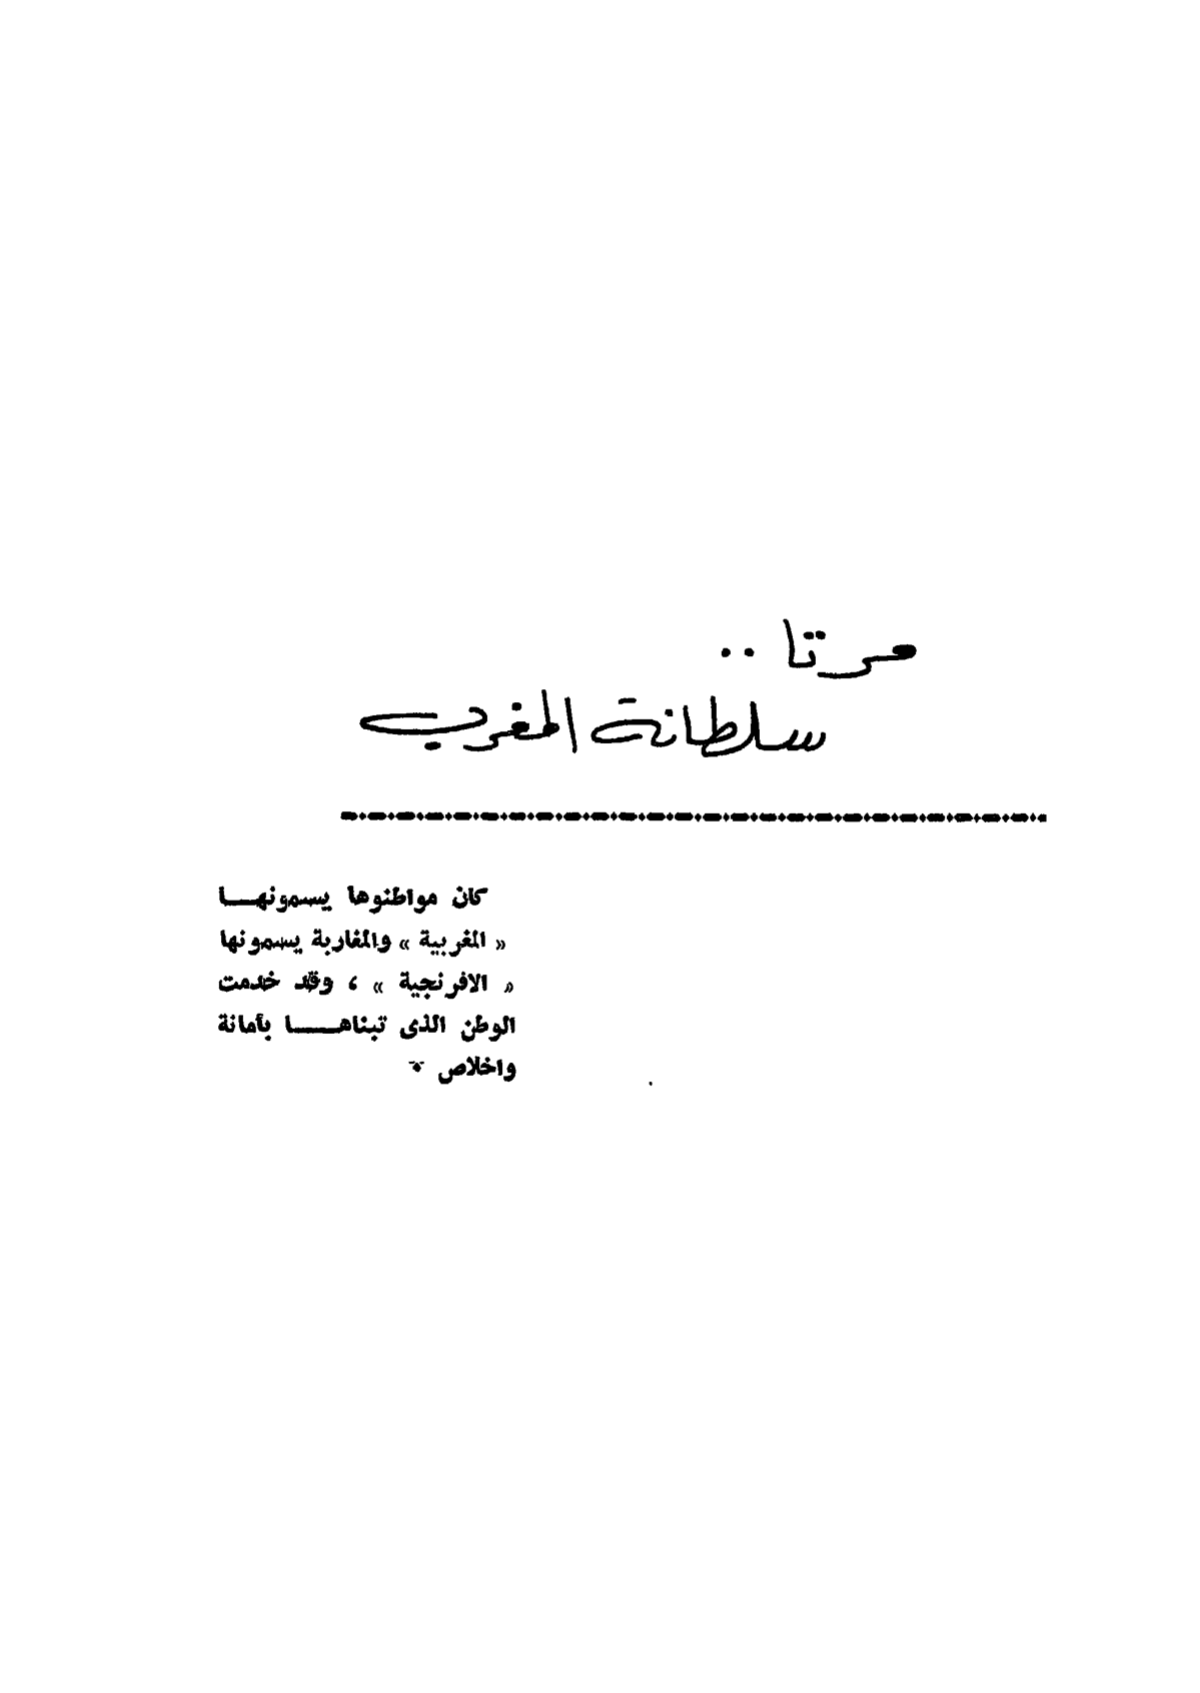 مرتا ..
سلطانة المغرب
كان مواطنوها يسمونهـــا
« المغربية » والمغاربة يسمونها
« الافرنجية » ، وقد خدمت
الوطن الذى تبناهـــــا بأمانة
واخلاص .